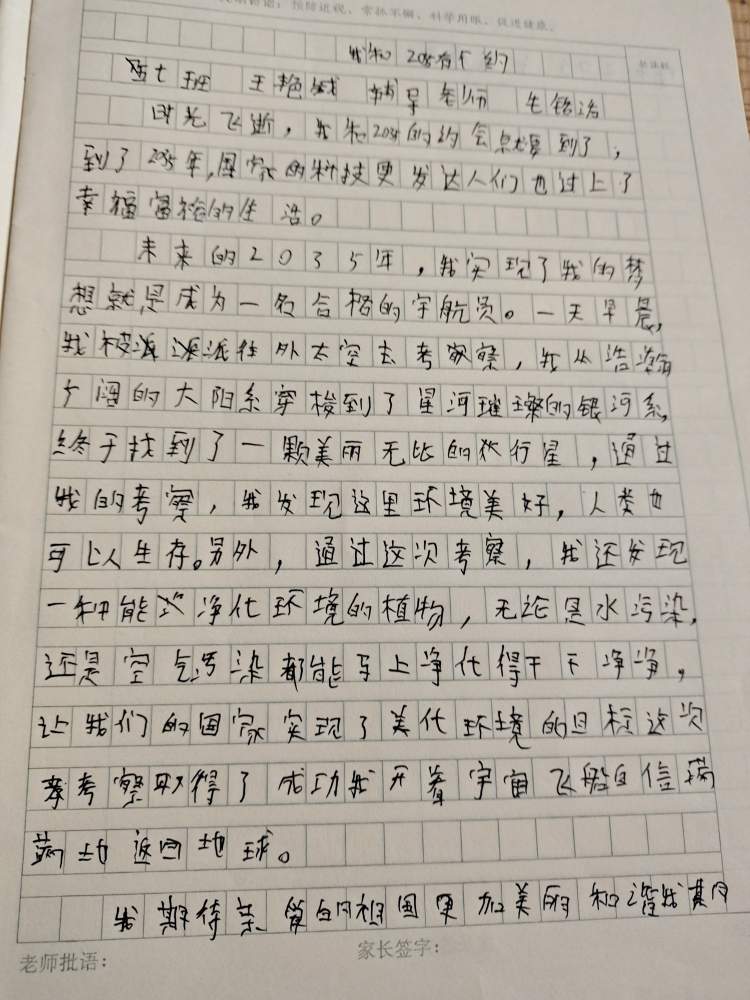 预防近视,常抓不懈,科学用眼,促进健康。
我和2035有个约
班 王艳 老师
时光飞逝,我和2035的约会就要到了,
到了2035年,国家的科技更发达人们也过上了
幸福富裕的生活。
未来的2035年,我实现了我的梦
想就是成为一名合格的宇航员。一天早晨,
我被派往外太空去考察,我从浩瀚
广阔的太阳系穿梭到了星河璀璨的银河系,
终于找到了一颗美丽无比的行星,通过
我的考察,我发现这里环境美好,人类也
可以生存。另外,通过这次考察,我还发现
一种能净化环境的植物,无论是水污染,
还是空气污染都能马上净化得干干净净,
让我们的国家实现了美化环境的目标这次
考察取得了成功我开着宇宙飞船自信满
满地返回地球。
我期待亲爱的祖国更加美丽和谐我其
老师批语: 家长签字: